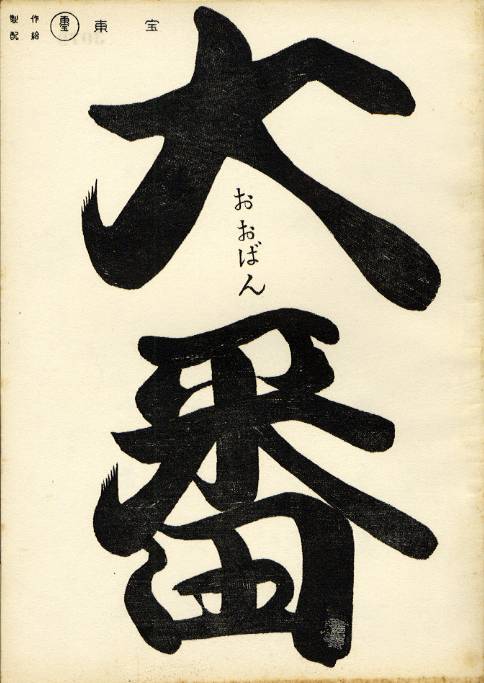 製作
配給
東宝
大番
おおばん